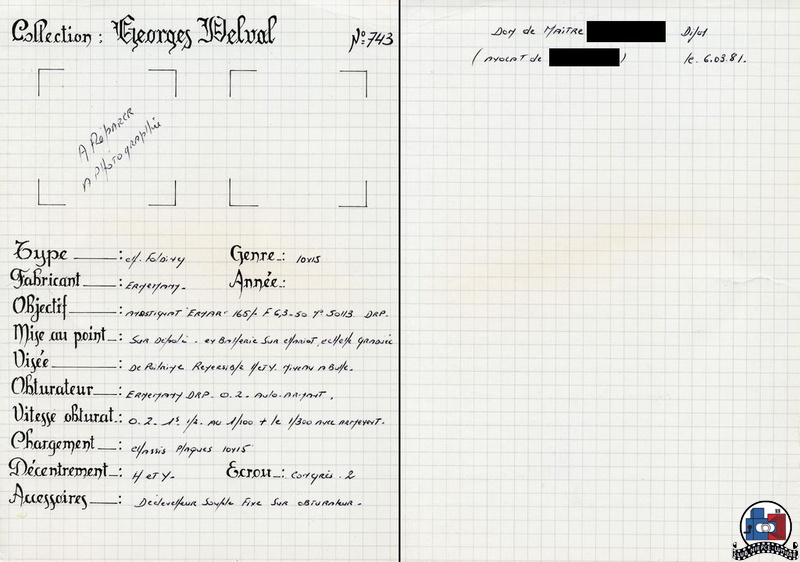 Collection : Georges Delval N° 743
A Réparer
A photographier
Type : ch. Folding Genre : 10x15
Fabricant : Ernemann. Année :
Objectif : Anastigmat Ernar 165/. F 6,3-50 N° 50113 DRP.
Mise au point : Sur Dépoli. et Batterie Sur chariot, echelle graduée
Visée : De Poitrine Reversible H et V. niveau à Bulle.
Obturateur : Ernemann DRP. 0.2. Auto-Armant.
Vitesse obturat. : 0.2. 1s 1/2. AU 1/100 + le 1/300 avec armement.
Chargement : chassis Plaques 10x15
Décentrement : H et V. Ecrou : Congrès. 2
Accessoires : Déclencheur Souple Fixe Sur obturateur.
Don de Maitre Dijon
( avocat de ) le. 6.03.81.